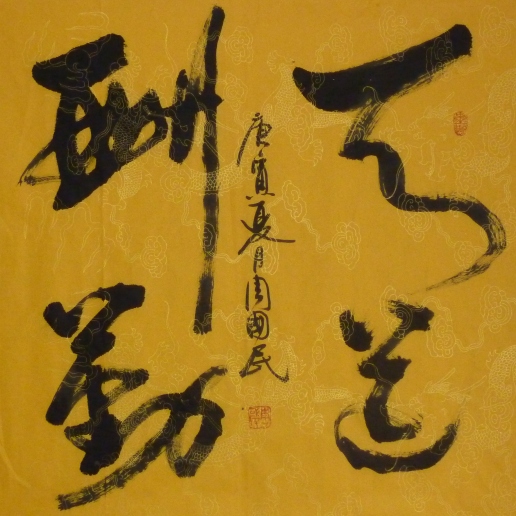 天道
酬勤
庚寅夏月周國民